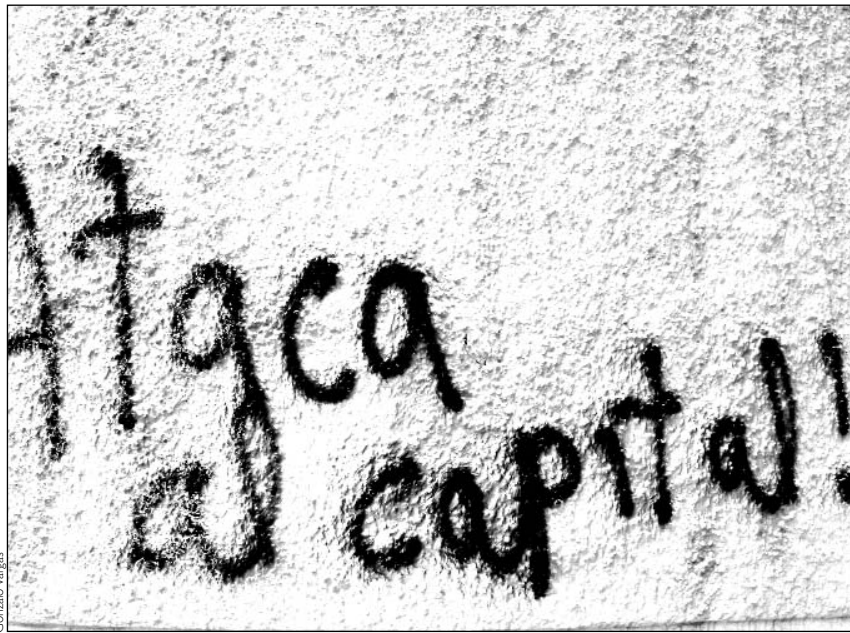 Ataca
al capital!
Gonzalo Vargas